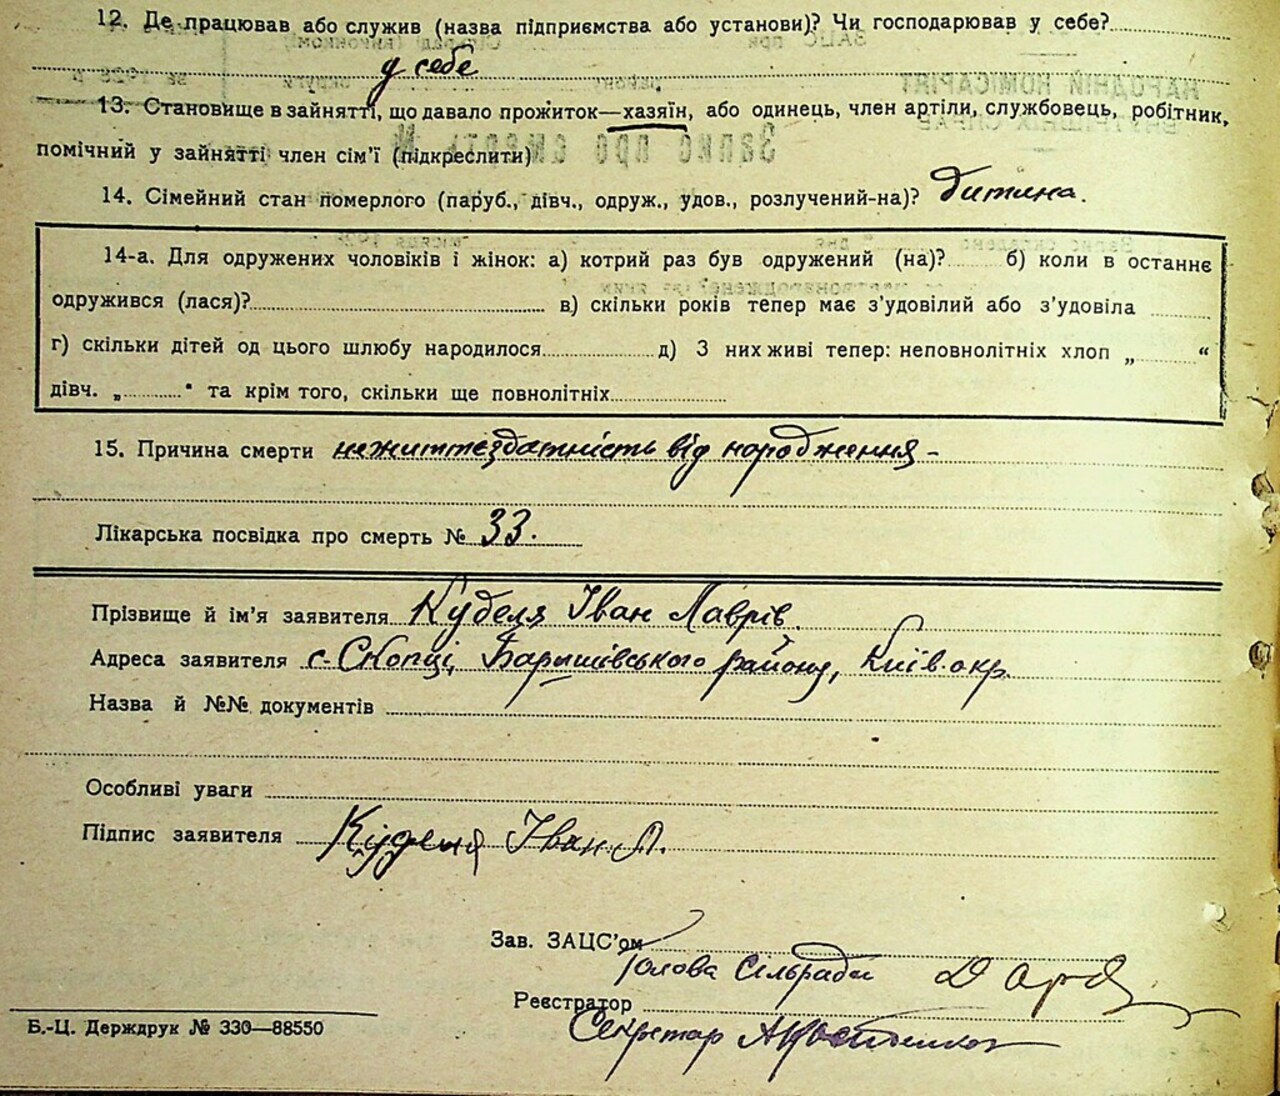 12. Де працював або служив (назва підприємства або установи)? Чи господарював у себе?
у себе
13. Становище в зайнятті, що давало прожиток—хазяїн, або одинець, член артіли, службовець, робітник,
помічний у зайнятті член сім'ї (підкреслити)
14. Сімейний стан померлого (паруб., дівч., одруж., удов., розлучений-на)? дитина.
14-а. Для одружених чоловіків і жінок: а) котрий раз був одружений (на)? б) коли в останнє
одружився (лася)? в) скільки років тепер має з'удовілий або з'удовіла
г) скільки дітей од цього шлюбу народилося д) З них живі тепер: неповнолітніх хлоп „ “
дівч. „ “ та крім того, скільки ще повнолітніх
15. Причина смерти нежиттєздатність від народження -
Лікарська посвідка про смерть № 33.
Прізвище й ім'я заявителя Куделя Іван Лаврів.
Адреса заявителя с. Скопці, Баришівського району, Київ. окр.
Назва й №№ документів
Особливі уваги
Підпис заявителя Куделя Іван Л.
Зав. ЗАЦС'ом
Голова Сільради
Реєстратор
Секретар
Б.-Ц. Держдрук № 330—88550